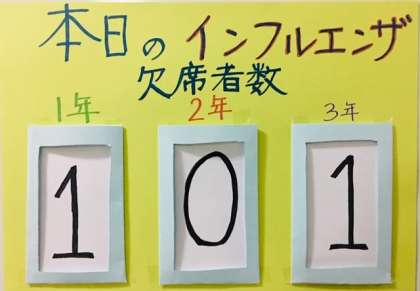 本日のインフルエンザ
欠席者数
1年 2年 3年
1 0 1